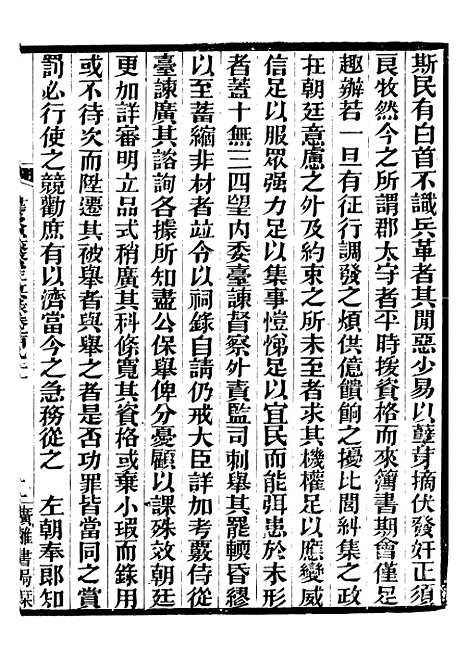 斯民有白首不識兵革者其閒惡少易以孽芽摘伏發奸正須
良牧然今之所謂郡太守者平時援資格而來簿書期會僅足
趣辦若一旦有征行調發之煩供億饋餉之擾比閭糾集之政
在朝廷意慮之外及約束之所未至者求其機權足以應變威
信足以服眾强力足以集事愷悌足以宜民而能弭患於未形
者蓋十無三四望內委臺諫督察外責監司刺舉其罷輭昏繆
以至蓄縮非材者竝令以祠錄自請仍戒大臣詳加考覈侍從
臺諫廣其諮詢各據所知盡公保舉俾分憂顧以課殊效朝廷
更加詳審明立品式稍廣其科條寬其資格或棄小瑕而錄用
或不待次而陞遷其被舉者與舉之者是否功罪皆當同之賞
罰必行使之競勸庶有以濟當今之急務從之　左朝奉郎知
廣雅書局栞